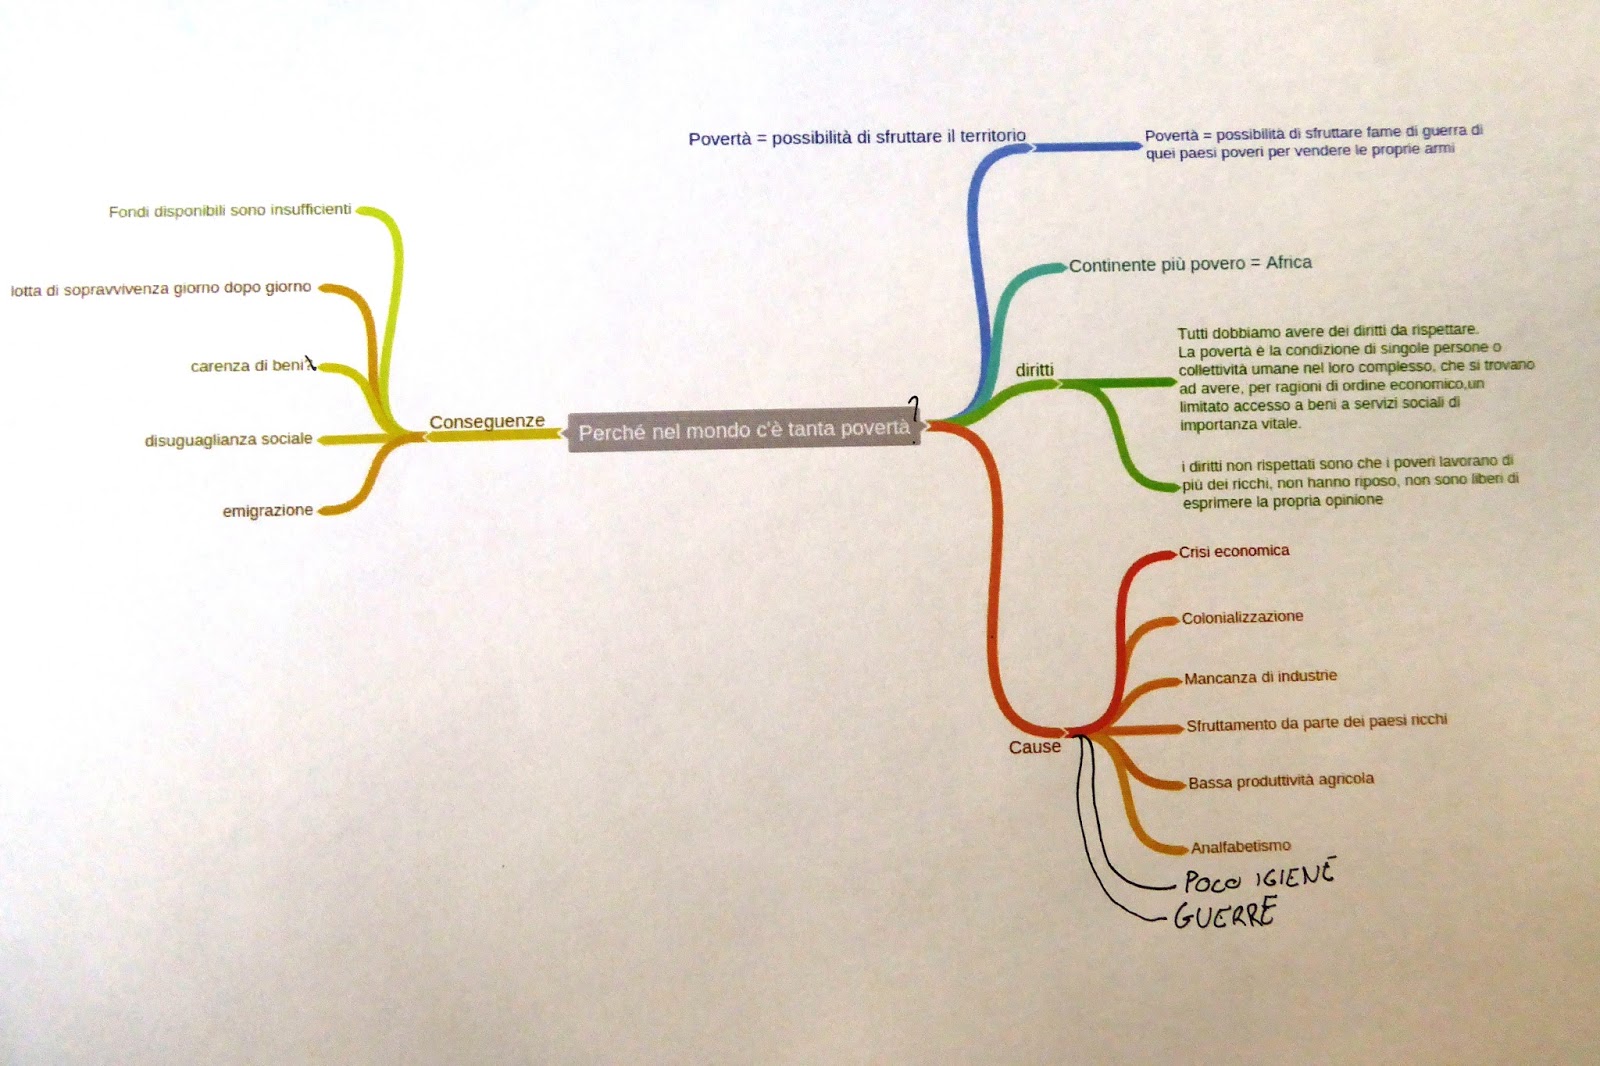 Perché nel mondo c'è tanta povertà?
Conseguenze
Fondi disponibili sono insufficienti
lotta di sopravvivenza giorno dopo giorno
carenza di beni
disuguaglianza sociale
emigrazione
Povertà = possibilità di sfruttare il territorio
Povertà = possibilità di sfruttare fame di guerra di
quei paesi poveri per vendere le proprie armi
Continente più povero = Africa
diritti
Tutti dobbiamo avere dei diritti da rispettare.
La povertà è la condizione di singole persone o
collettività umane nel loro complesso, che si trovano
ad avere, per ragioni di ordine economico,un
limitato accesso a beni a servizi sociali di
importanza vitale.
i diritti non rispettati sono che i poveri lavorano di
più dei ricchi, non hanno riposo, non sono liberi di
esprimere la propria opinione
Cause
Crisi economica
Colonializzazione
Mancanza di industrie
Sfruttamento da parte dei paesi ricchi
Bassa produttività agricola
Analfabetismo
POCO IGIENE
GUERRE